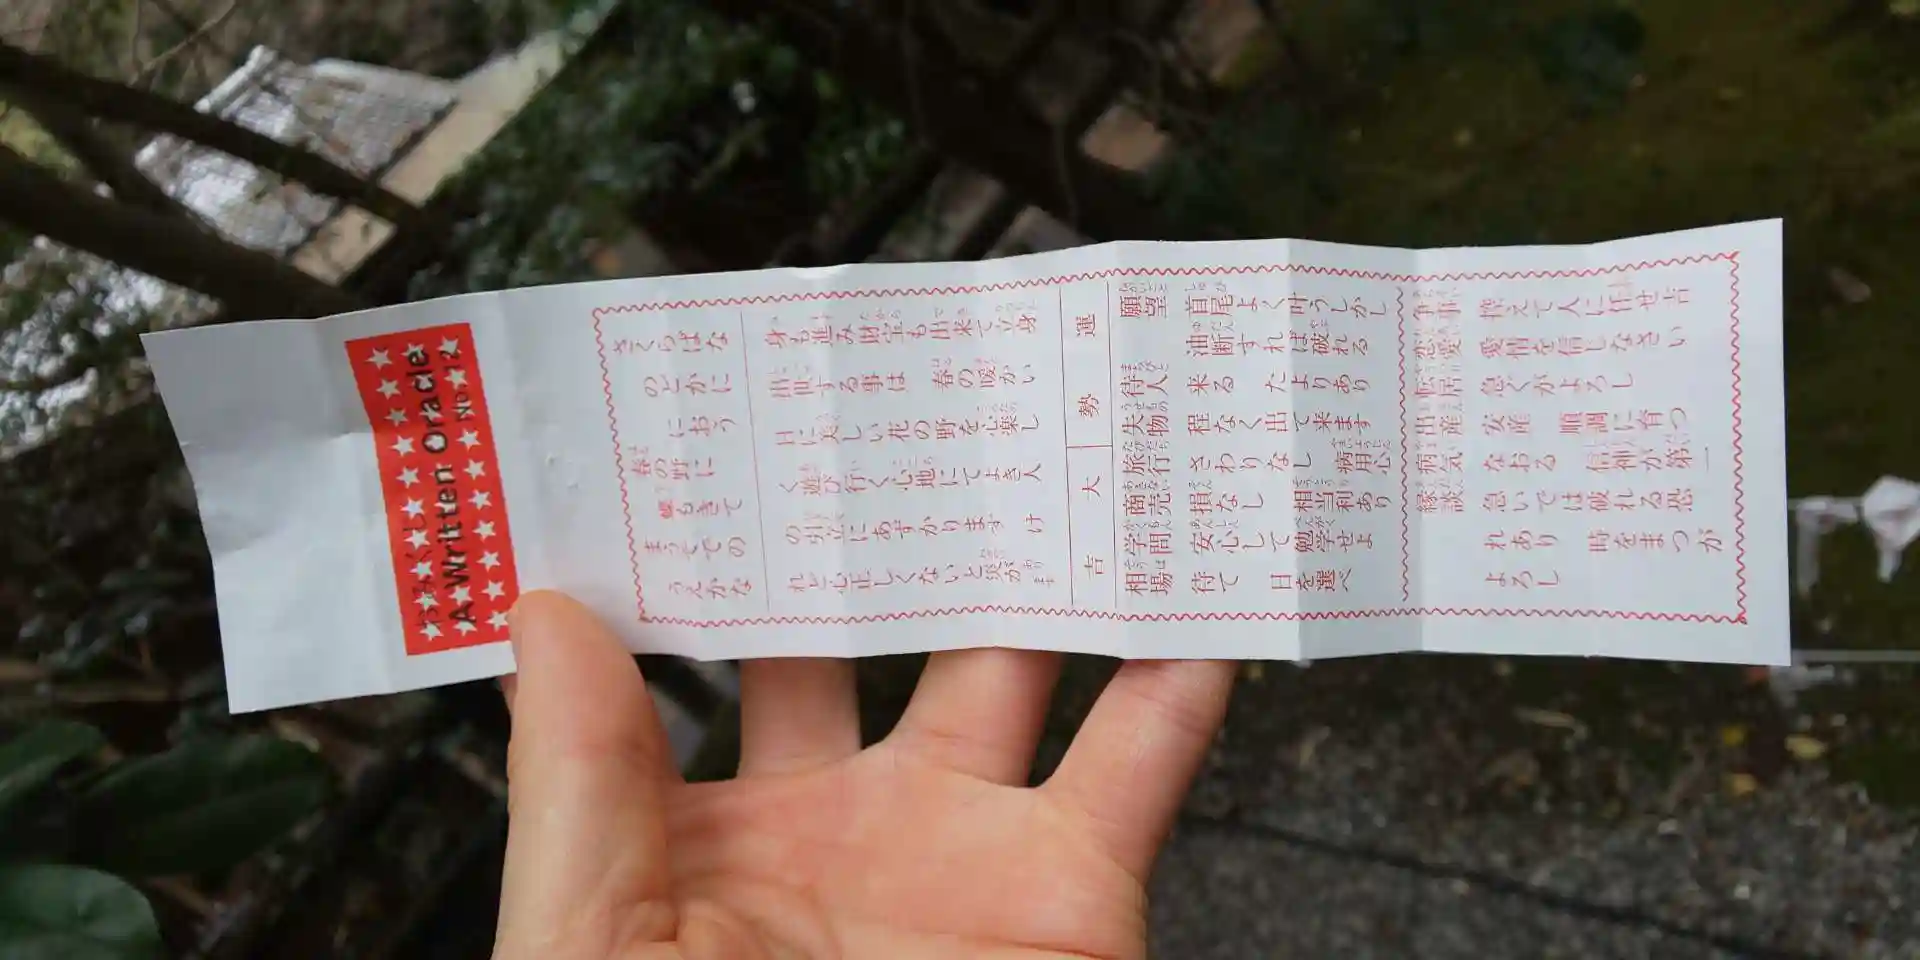 おみくじ
A Written Oracle
No. 12
さくらばな
のどかに
におう
春の野に
蝶もきて
まうそでの
うえかな
身も進み財宝も出来て立身
出世する事は 春の暖かい
日に美しい花の野を心楽し
く遊び行く心地にてよき人
の引立にあずかります け
れど心正しくないと災があります
運勢 大吉
願望 首尾よく叶うしかし
油断すれば破れる
待人 来る たよりあり
失物 程なく出て来ます
旅行 さわりなし 病用心
商売 損なし 相当利あり
学問 安心して勉学せよ
相場 待て 日を選べ
争事 控えて人に任せ吉
恋愛 愛情を信じなさい
転居 急ぐがよろし
出産 安産 順調に育つ
病気 なおる 信神が第一
縁談 急いでは破れる恐
れあり 時をまつが
よろし